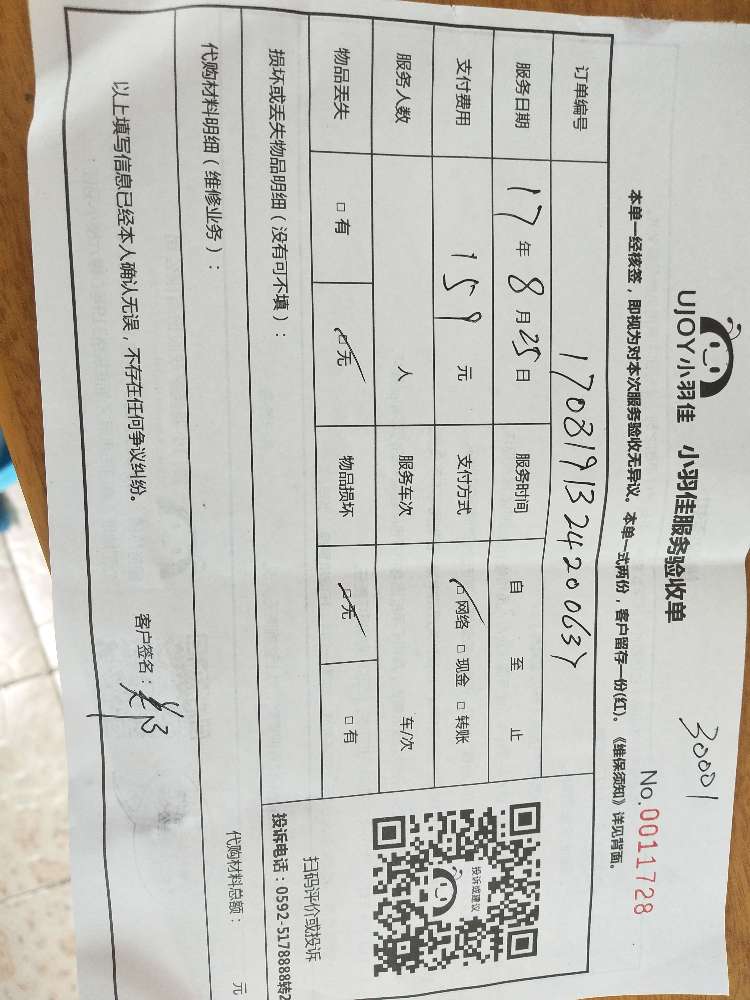 30001
UJOY小羽佳 小羽佳服务验收单
No.0011728
本单一经核签，即视为对本次服务验收无异议。本单一式两份，客户留存一份(红)。《维保须知》详见背面。
订单编号
服务日期 17年8月25日 服务时间 自 至 止
支付费用 159元 支付方式 □网络 □现金 □转账
服务人数 人 服务车次 车/次
物品丢失 □有 □无 物品损坏 □无 □有
损坏或丢失物品明细（没有可不填）：
投诉或建议
扫码评价或投诉
投诉电话：0592-5178888转2
代购材料明细（维修业务）： 代购材料总额： 元
以上填写信息已经本人确认无误，不存在任何争议纠纷。 客户签名：